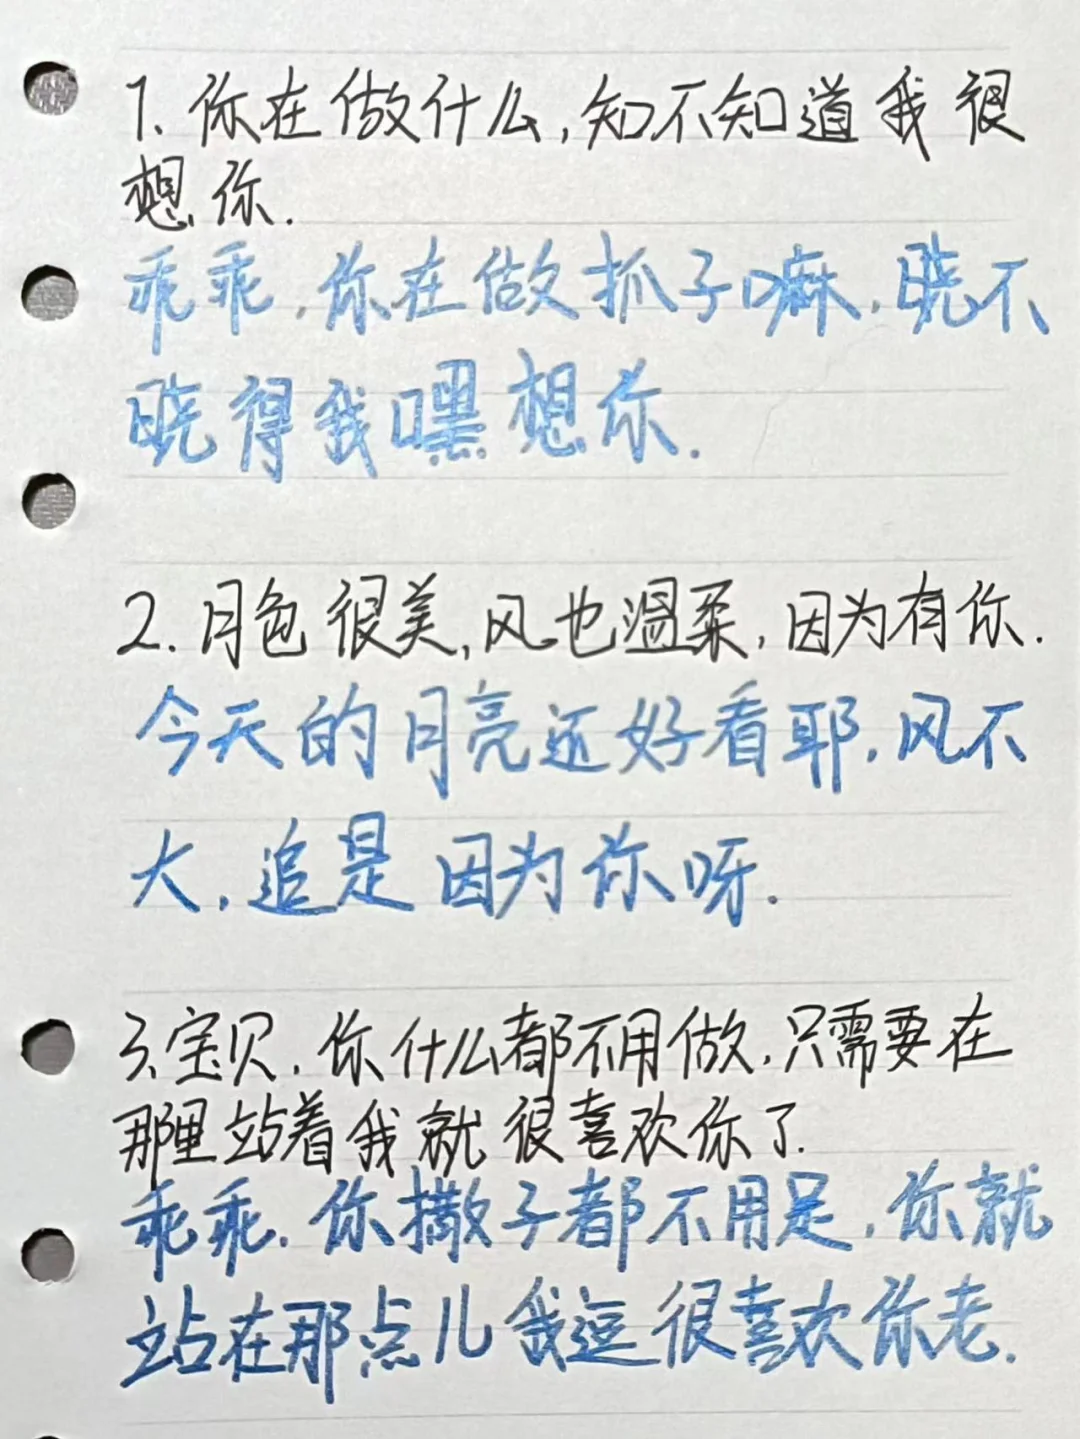 1. 你在做什么,知不知道我很
想你.
乖乖,你在做抓子嘛,晓不
晓得我嘿想你.
2. 月色很美,风也温柔,因为有你.
今天的月亮还好看耶,风不
大,追是因为你呀.
3.宝贝,你什么都不用做,只需要在
那里站着我就很喜欢你了.
乖乖,你撒子都不用足,你就
站在那点儿我逗很喜欢你老.